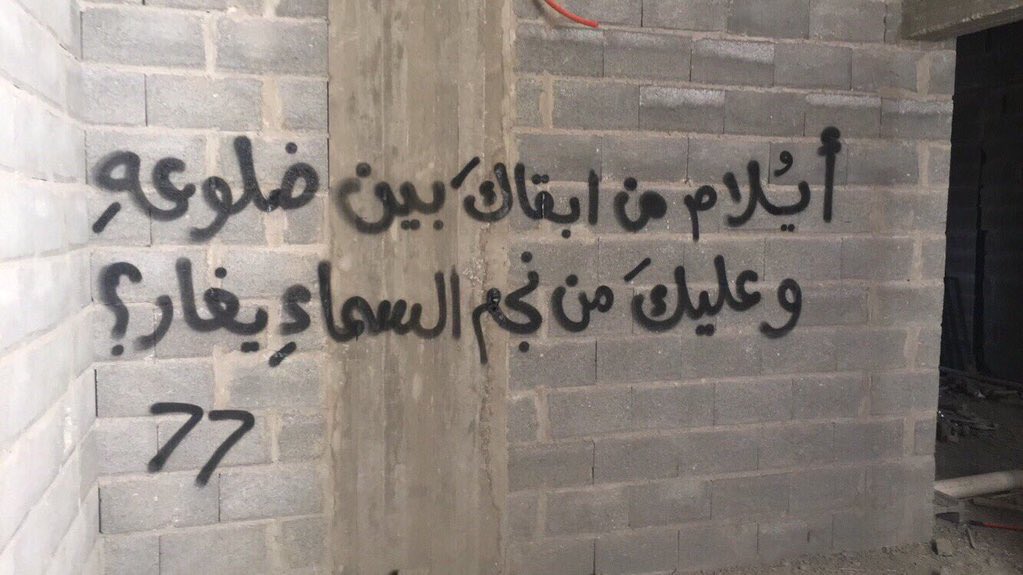 أيُلام من ابقاكَ بين ضلوعهِ
وعليكَ من نجم السماءِ يغار؟
77